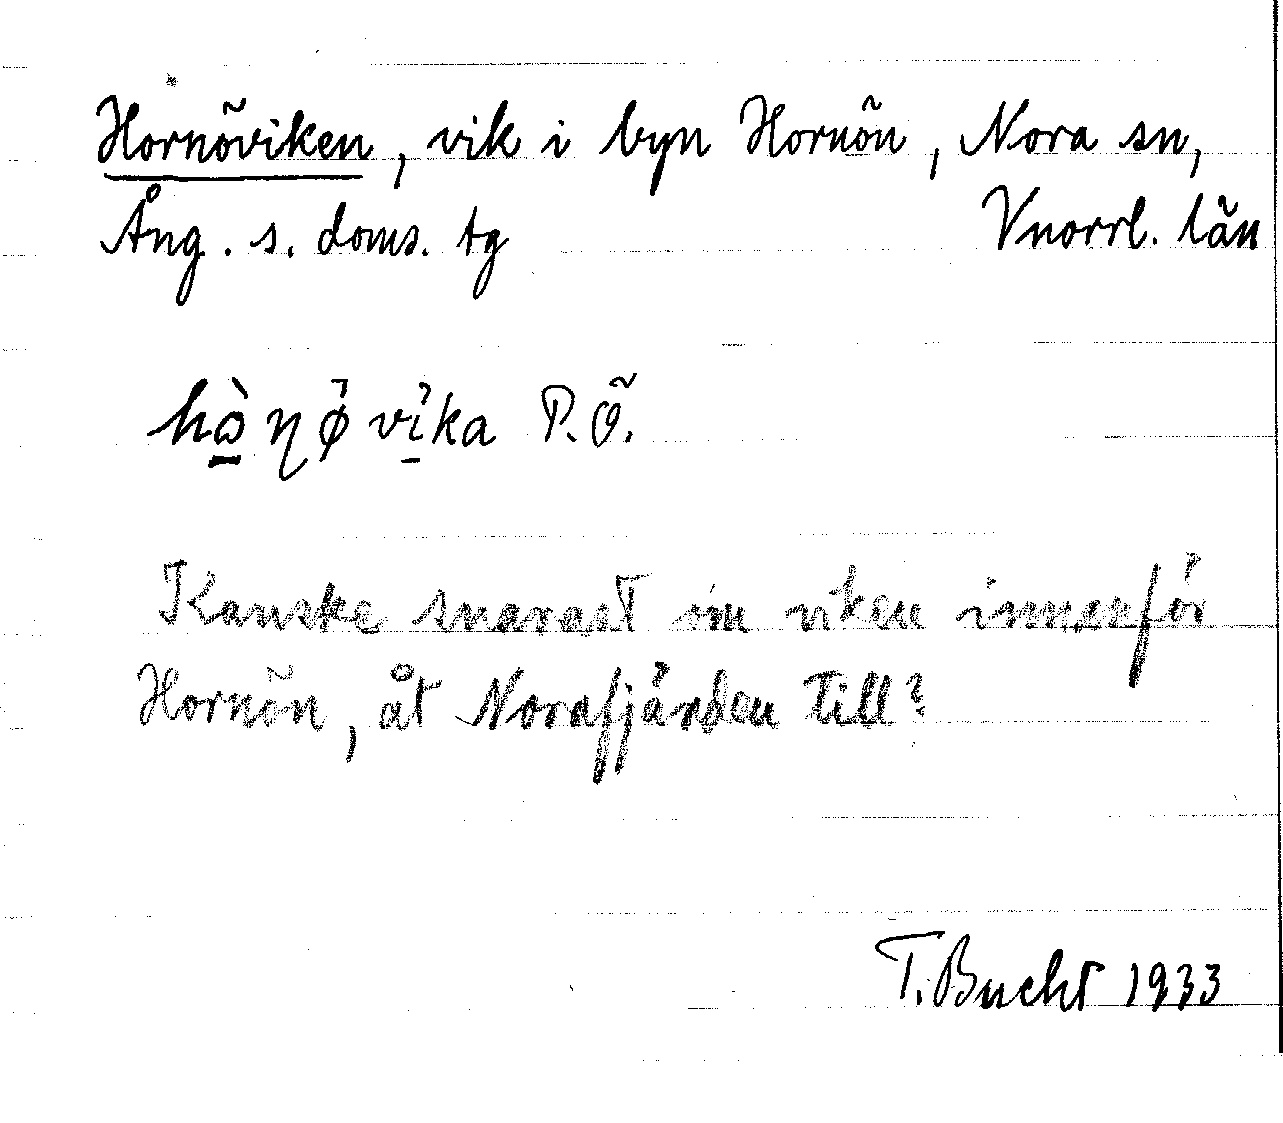 Hornöviken, vik i byn Hornön, Nora sn,
Ång. s. doms. tg Vnorrl. län
P.Ö.
Kanske snarast om viken innanför
Hornön, åt Norafjärden till?
T. Bucht 1933